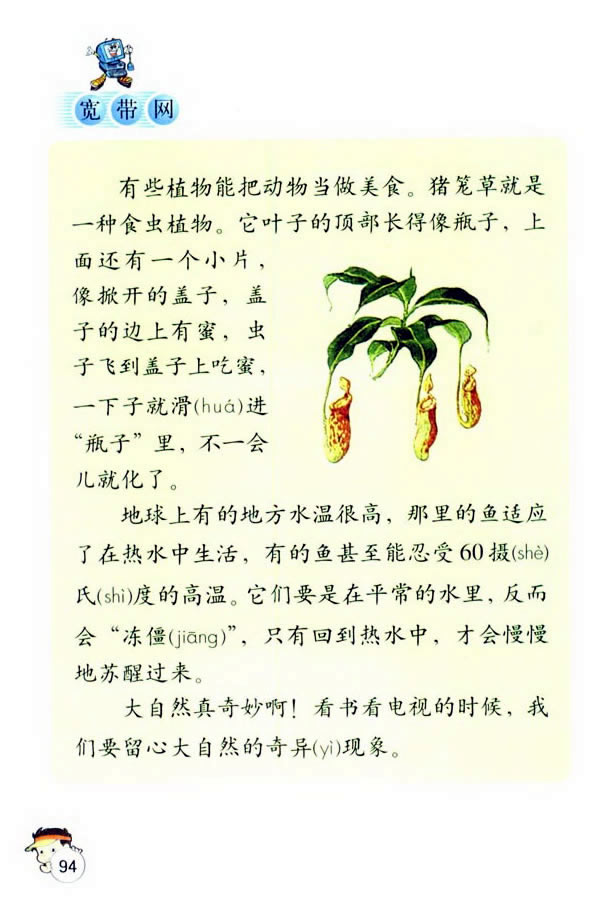 宽带网
有些植物能把动物当做美食。猪笼草就是
一种食虫植物。它叶子的顶部长得像瓶子，上
面还有一个小片，
像掀开的盖子，盖
子的边上有蜜，虫
子飞到盖子上吃蜜，
一下子就滑(huá)进
“瓶子”里，不一会
儿就化了。
地球上有的地方水温很高，那里的鱼适应
了在热水中生活，有的鱼甚至能忍受60摄(shè)
氏(shì)度的高温。它们要是在平常的水里，反而
会“冻僵(jiāng)”，只有回到热水中，才会慢慢
地苏醒过来。
大自然真奇妙啊！看书看电视的时候，我
们要留心大自然的奇异(yì)现象。
94